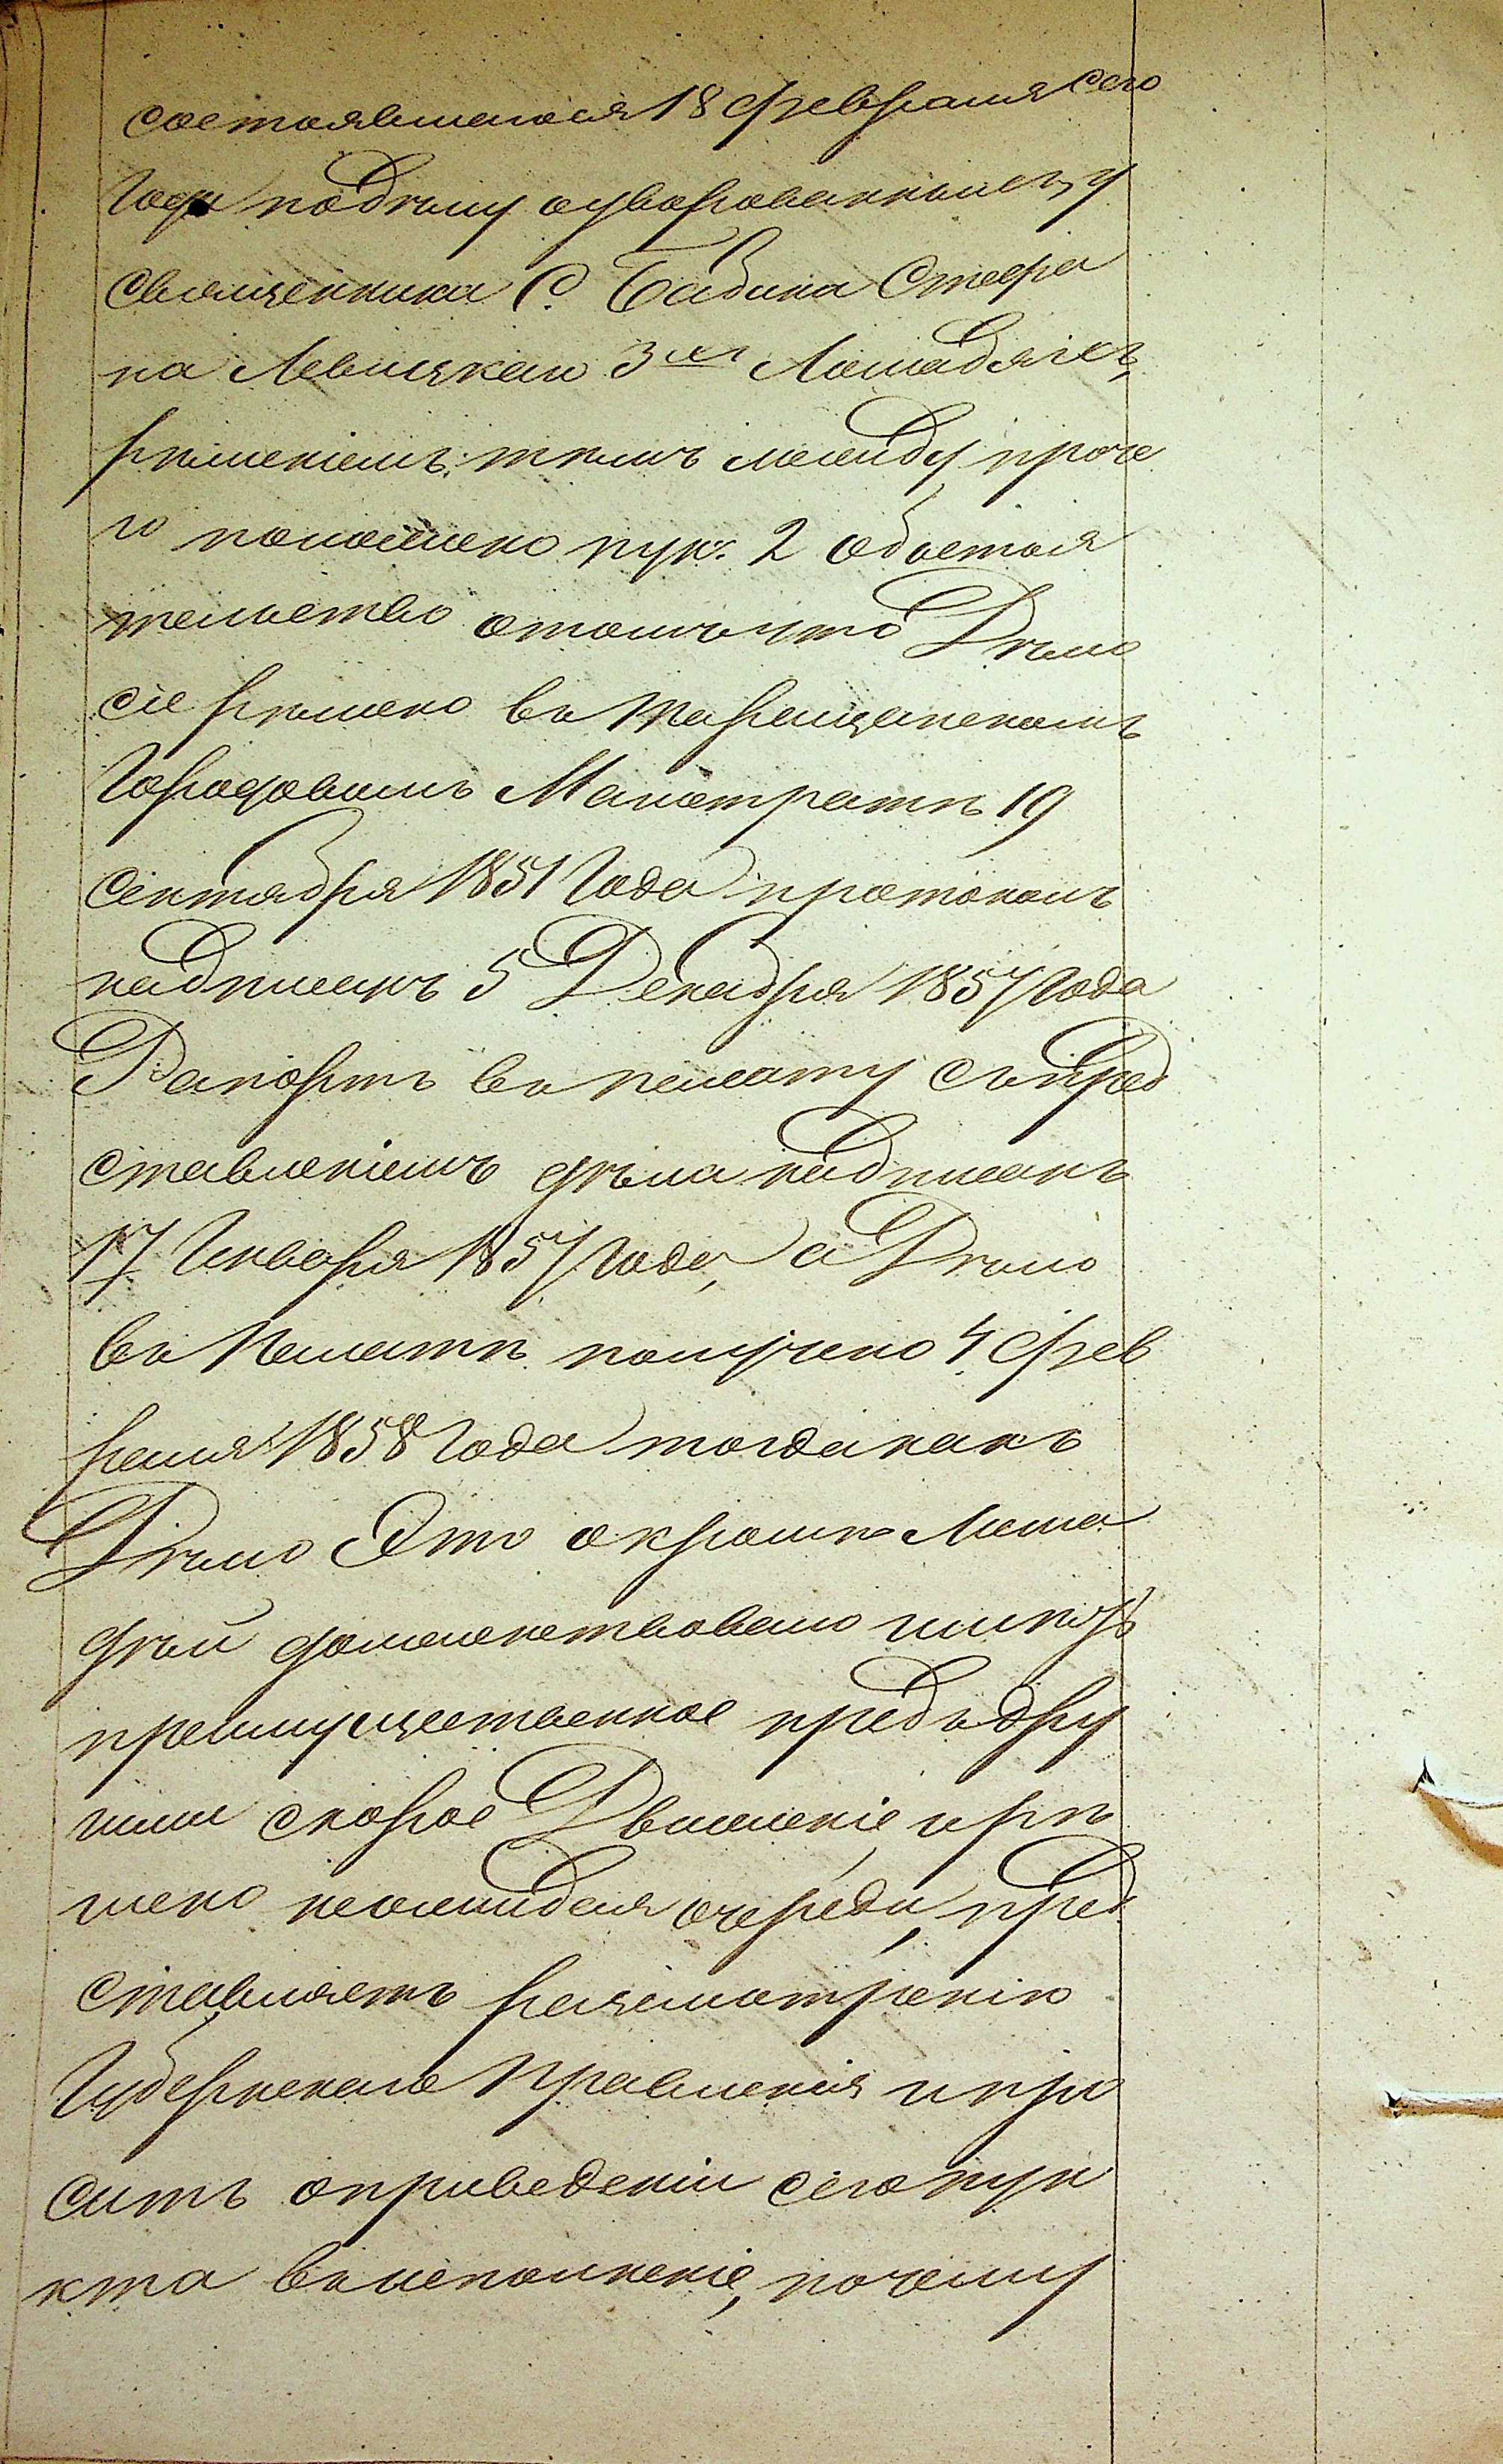 состоявшагося 18 февраля сего
года по делу оуворованныхъ у
священника С. Бабина Стефа
на Левицкаго 3хъ Лошадяхъ,
решеніемъ: темъ между проче
го положено пунк. 2 Обстоя
тельство отомъ что Дѣло
сіе решено въ Таращанскомъ
Городовомъ Магистратѣ 19
Сентября 1857 Года протоколъ
надписанъ 5 Декабря 1857 года
Рапортъ въ палату съ пред
ставленіемъ дѣла надписанъ
17 Января 1857 года, а Дѣло
въ Палатѣ получено 4 Фев
раля 1858 Года тогда какъ
Дѣло Это о кражѣ Лоша
дѣй долженствовало имѣть
преимущественное предъ дру
гими скорое Движеніе, и рѣ
шено неожидая очереди, пред
ставляетъ разсмотренію
Губернскаго Правленія и про
ситъ о приведеніи сего пун
кта въ исполненіе, почему